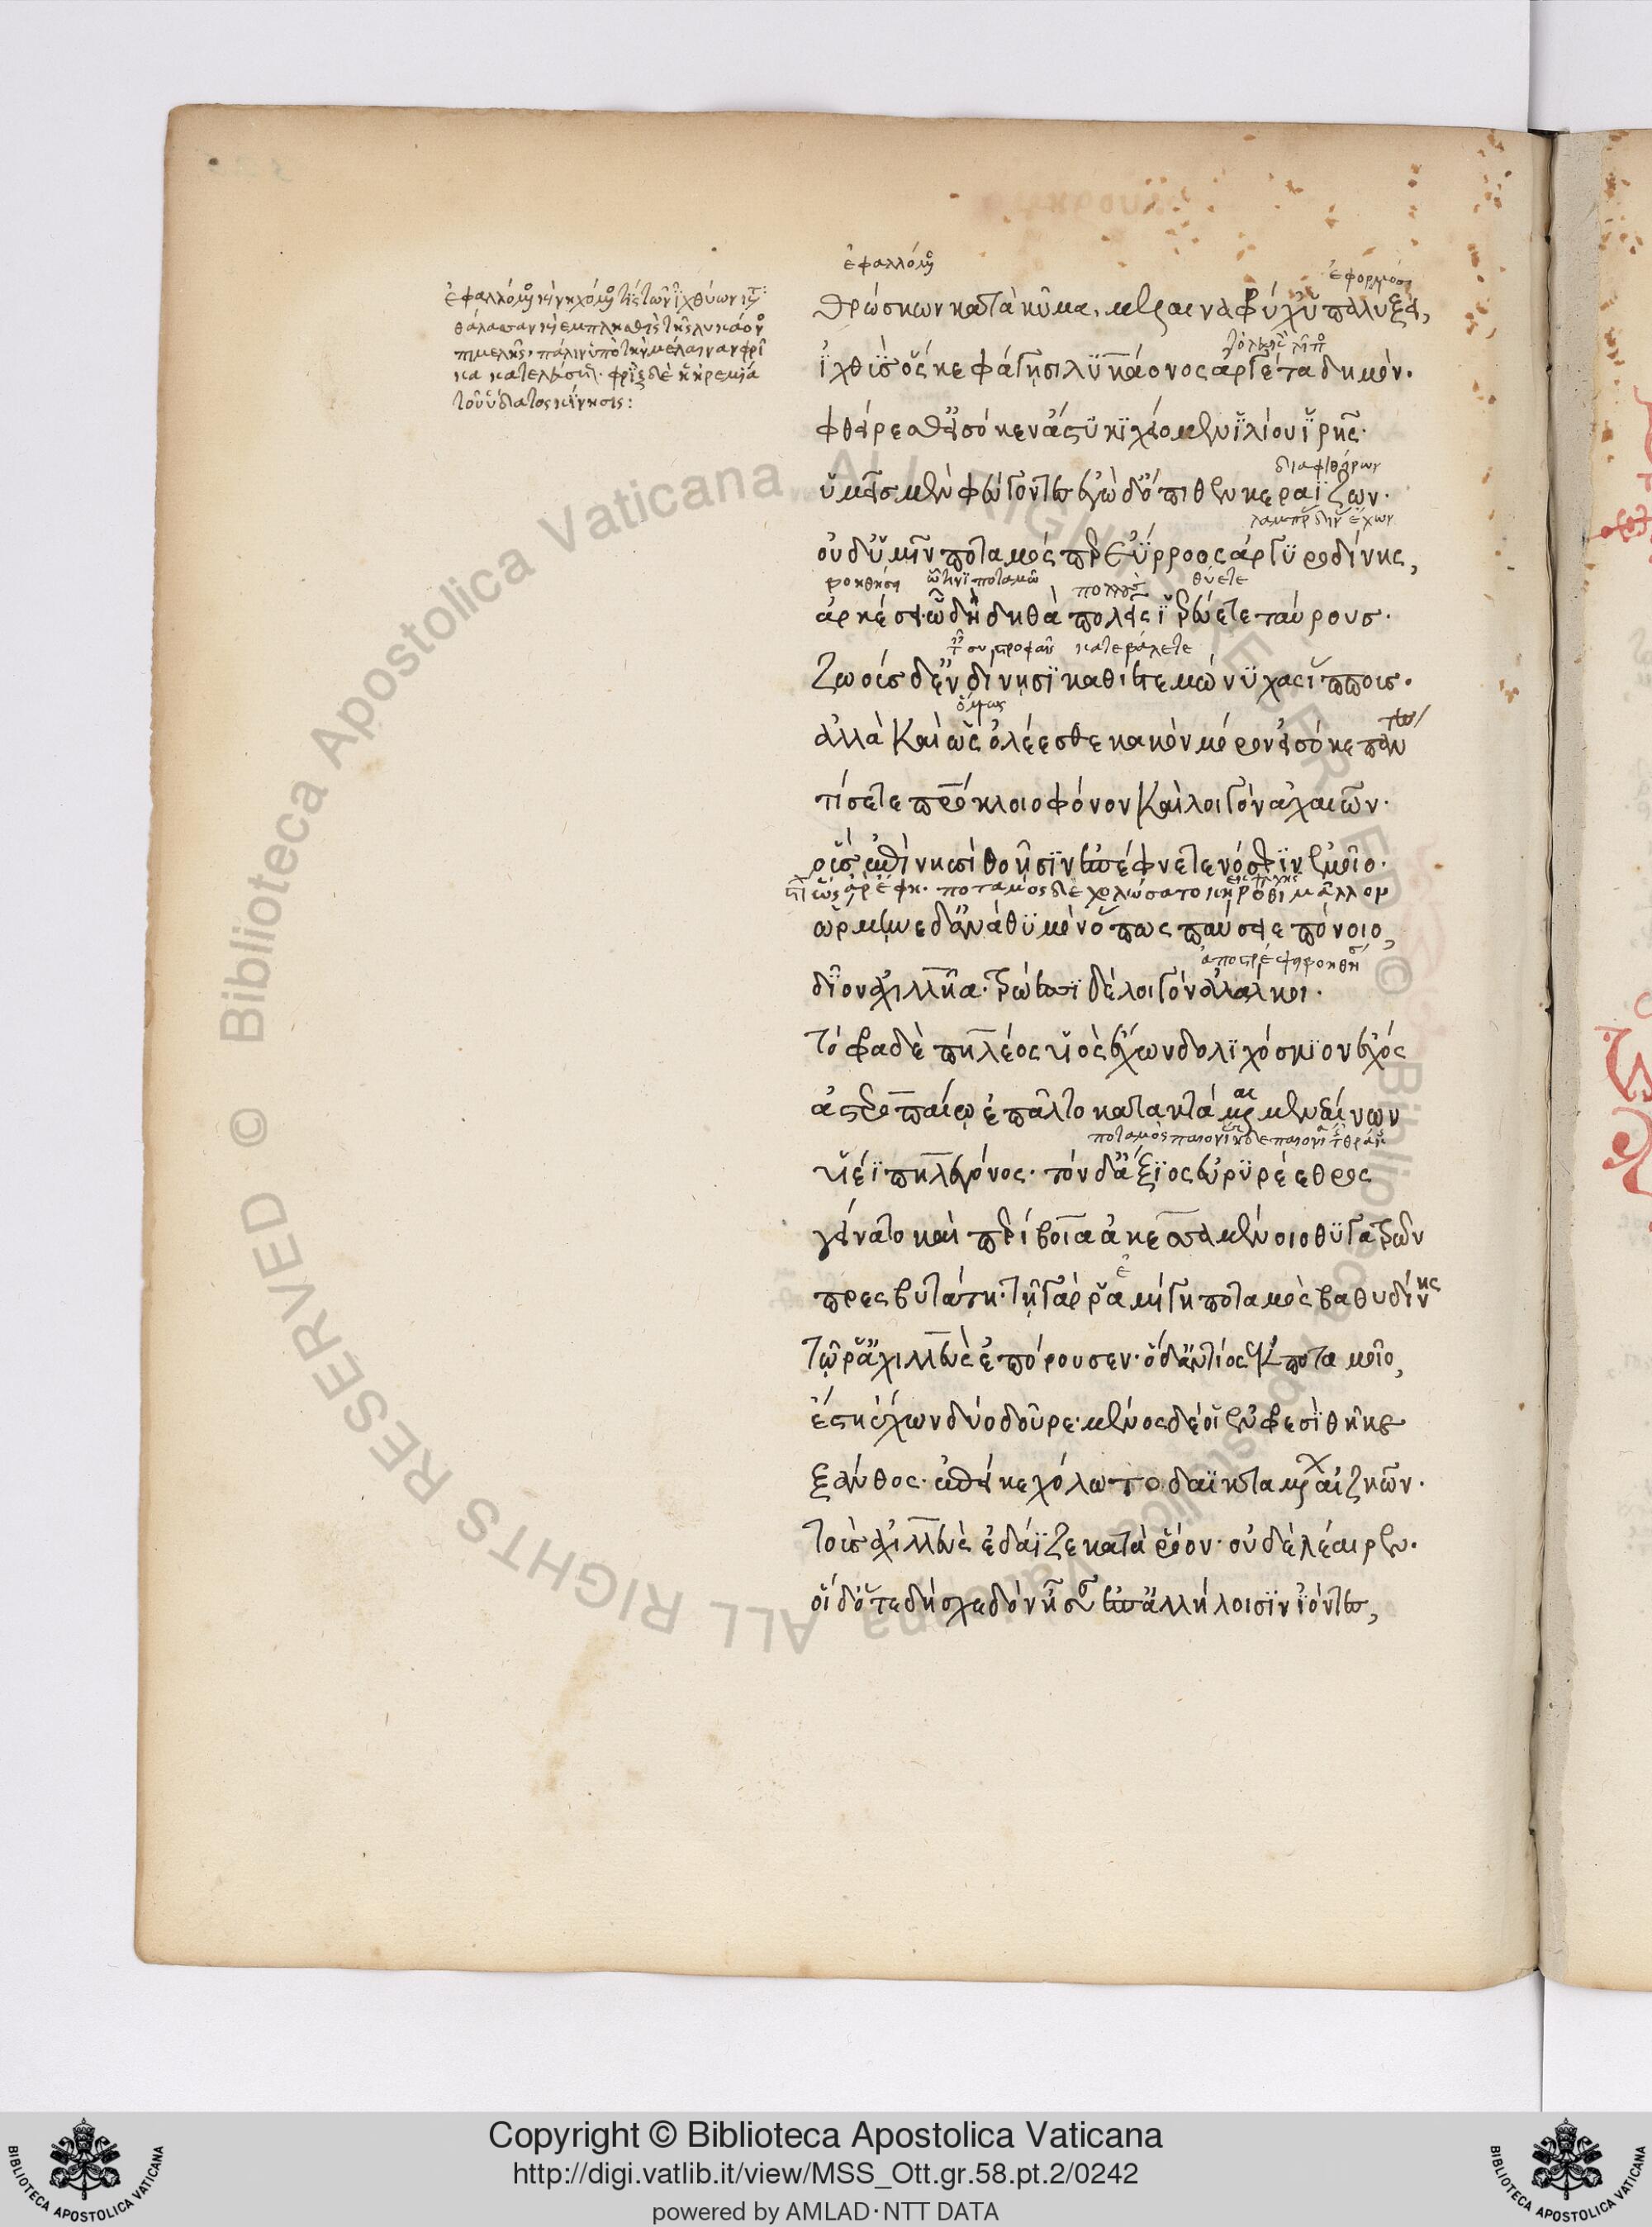 ἐφαλλόμενος
ἐφορμήσει
ἐφαλλόμενος καὶ νηχόμενός τις τῶν ἰχθύων κατὰ
θάλασσαν καὶ ἐμπλησθεὶς τῆς λυκάονος
πιμελῆς, πάλιν ὑπὸ τὴν μέλαιναν φρῖ
κα κατελεύσεται. φρὶξ δὲ ἡ ἠρεμαία
τοῦ ὕδατος κίνησις:
θρώσκων κατὰ κῦμα, μέλαιναν φρίχ' ὑπαλύξει,
ἰχθὺς ὅς κε φάγῃσι λυκάονος ἀργέτα δημόν.
φθείρεσθ' εἰσόκεν ἄστυ κιχείομεν ἰλίου ἱρῆς.
διαφθείρων
ὑμεῖς μὲν φεύγοντες ἐγὼ δ' ὄπιθεν κεραΐζων.
οὐδ' ὑμῖν ποταμός περ ἐΰρροος ἀργυροδίνης,
βοηθήσει ᾧτινι ποταμῷ πολλοὺς θύετε
ἀρκέσει ᾧ δὴ δηθὰ πολεῖς ἱερεύετε ταύρους.
κατεβάλετε
ζωοὺς δ' ἐν δίνῃσι καθίετε μώνυχας ἵππους.
ὅμως
ἀλλὰ καὶ ὣς ὀλέεσθε κακὸν μόρον εἰσόκε πάντες
τίσετε πατρόκλοιο φόνον καὶ λοιγὸν ἀχαιῶν.
οὓς ἐπὶ νηυσὶ θοῇσιν ἐπέφνετε νόσφιν ἐμεῖο.
ὣς ἄρ' ἔφη. ποταμὸς δὲ χολώσατο κηρόθι μᾶλλον
ὥρμηνεν δ' ἀνὰ θυμὸν ὅπως παύσειε πόνοιο,
δῖον ἀχιλλῆα. τρώεσσι δὲ λοιγὸν ἀλάλκοι.
τόφρα δὲ πηλέος υἱὸς ἔχων δολιχόσκιον ἔγχος
ἀστεροπαίῳ ἐπᾶλτο κατακτάμεναι μενεαίνων
υἱέϊ πηλεγόνος. τὸν δ' ἄξιος εὐρυρέεθρος
γείνατο καὶ περίβοια ἀκεσσαμενοῖο θυγατρῶν
πρεσβυτάτη. τῇ γάρ ῥα μίγη ποταμὸς βαθυδίνης
τῷ ῥ' ἀχιλλεὺς ἐπόρουσεν. ὁ δ' ἀντίος ἐκ ποταμοῖο,
ἔστη ἔχων δύο δοῦρε. μένος δέ οἱ ἐν φρεσὶ θῆκε
ξάνθος. ἐπεὶ κεχόλωτο δαϊκταμένων αἰζηῶν.
τοὺς ἀχιλλεὺς ἐδάϊζε κατὰ ῥόον. οὐδ' ἐλέαιρεν.
οἱ δ' ὅτε δὴ σχεδὸν ἦσαν ἐπ' ἀλλήλοισιν ἰόντες,
Copyright © Biblioteca Apostolica Vaticana
http://digi.vatlib.it/view/MSS_Ott.gr.58.pt.2/0242
powered by AMLAD·NTT DATA